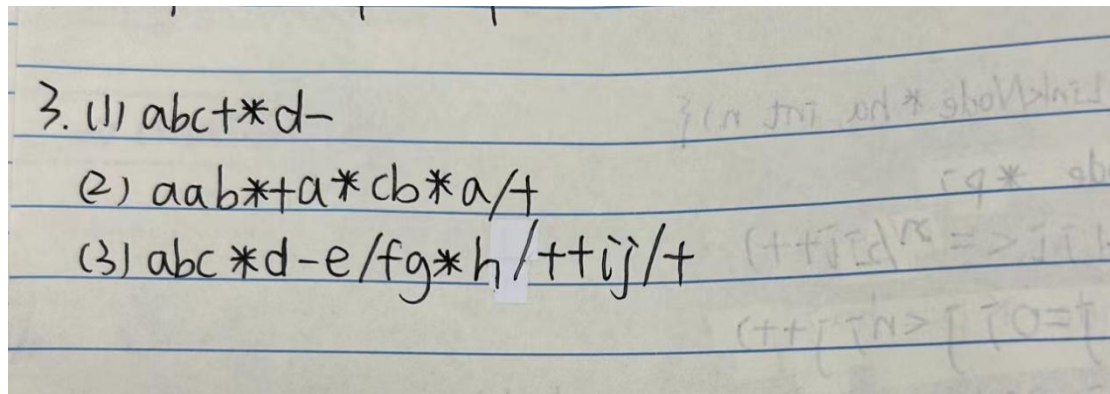 3. (1) abc+*d-
(2) aab*+a*cb*a/+
(3) abc*d-e/fg*h/++ij/+